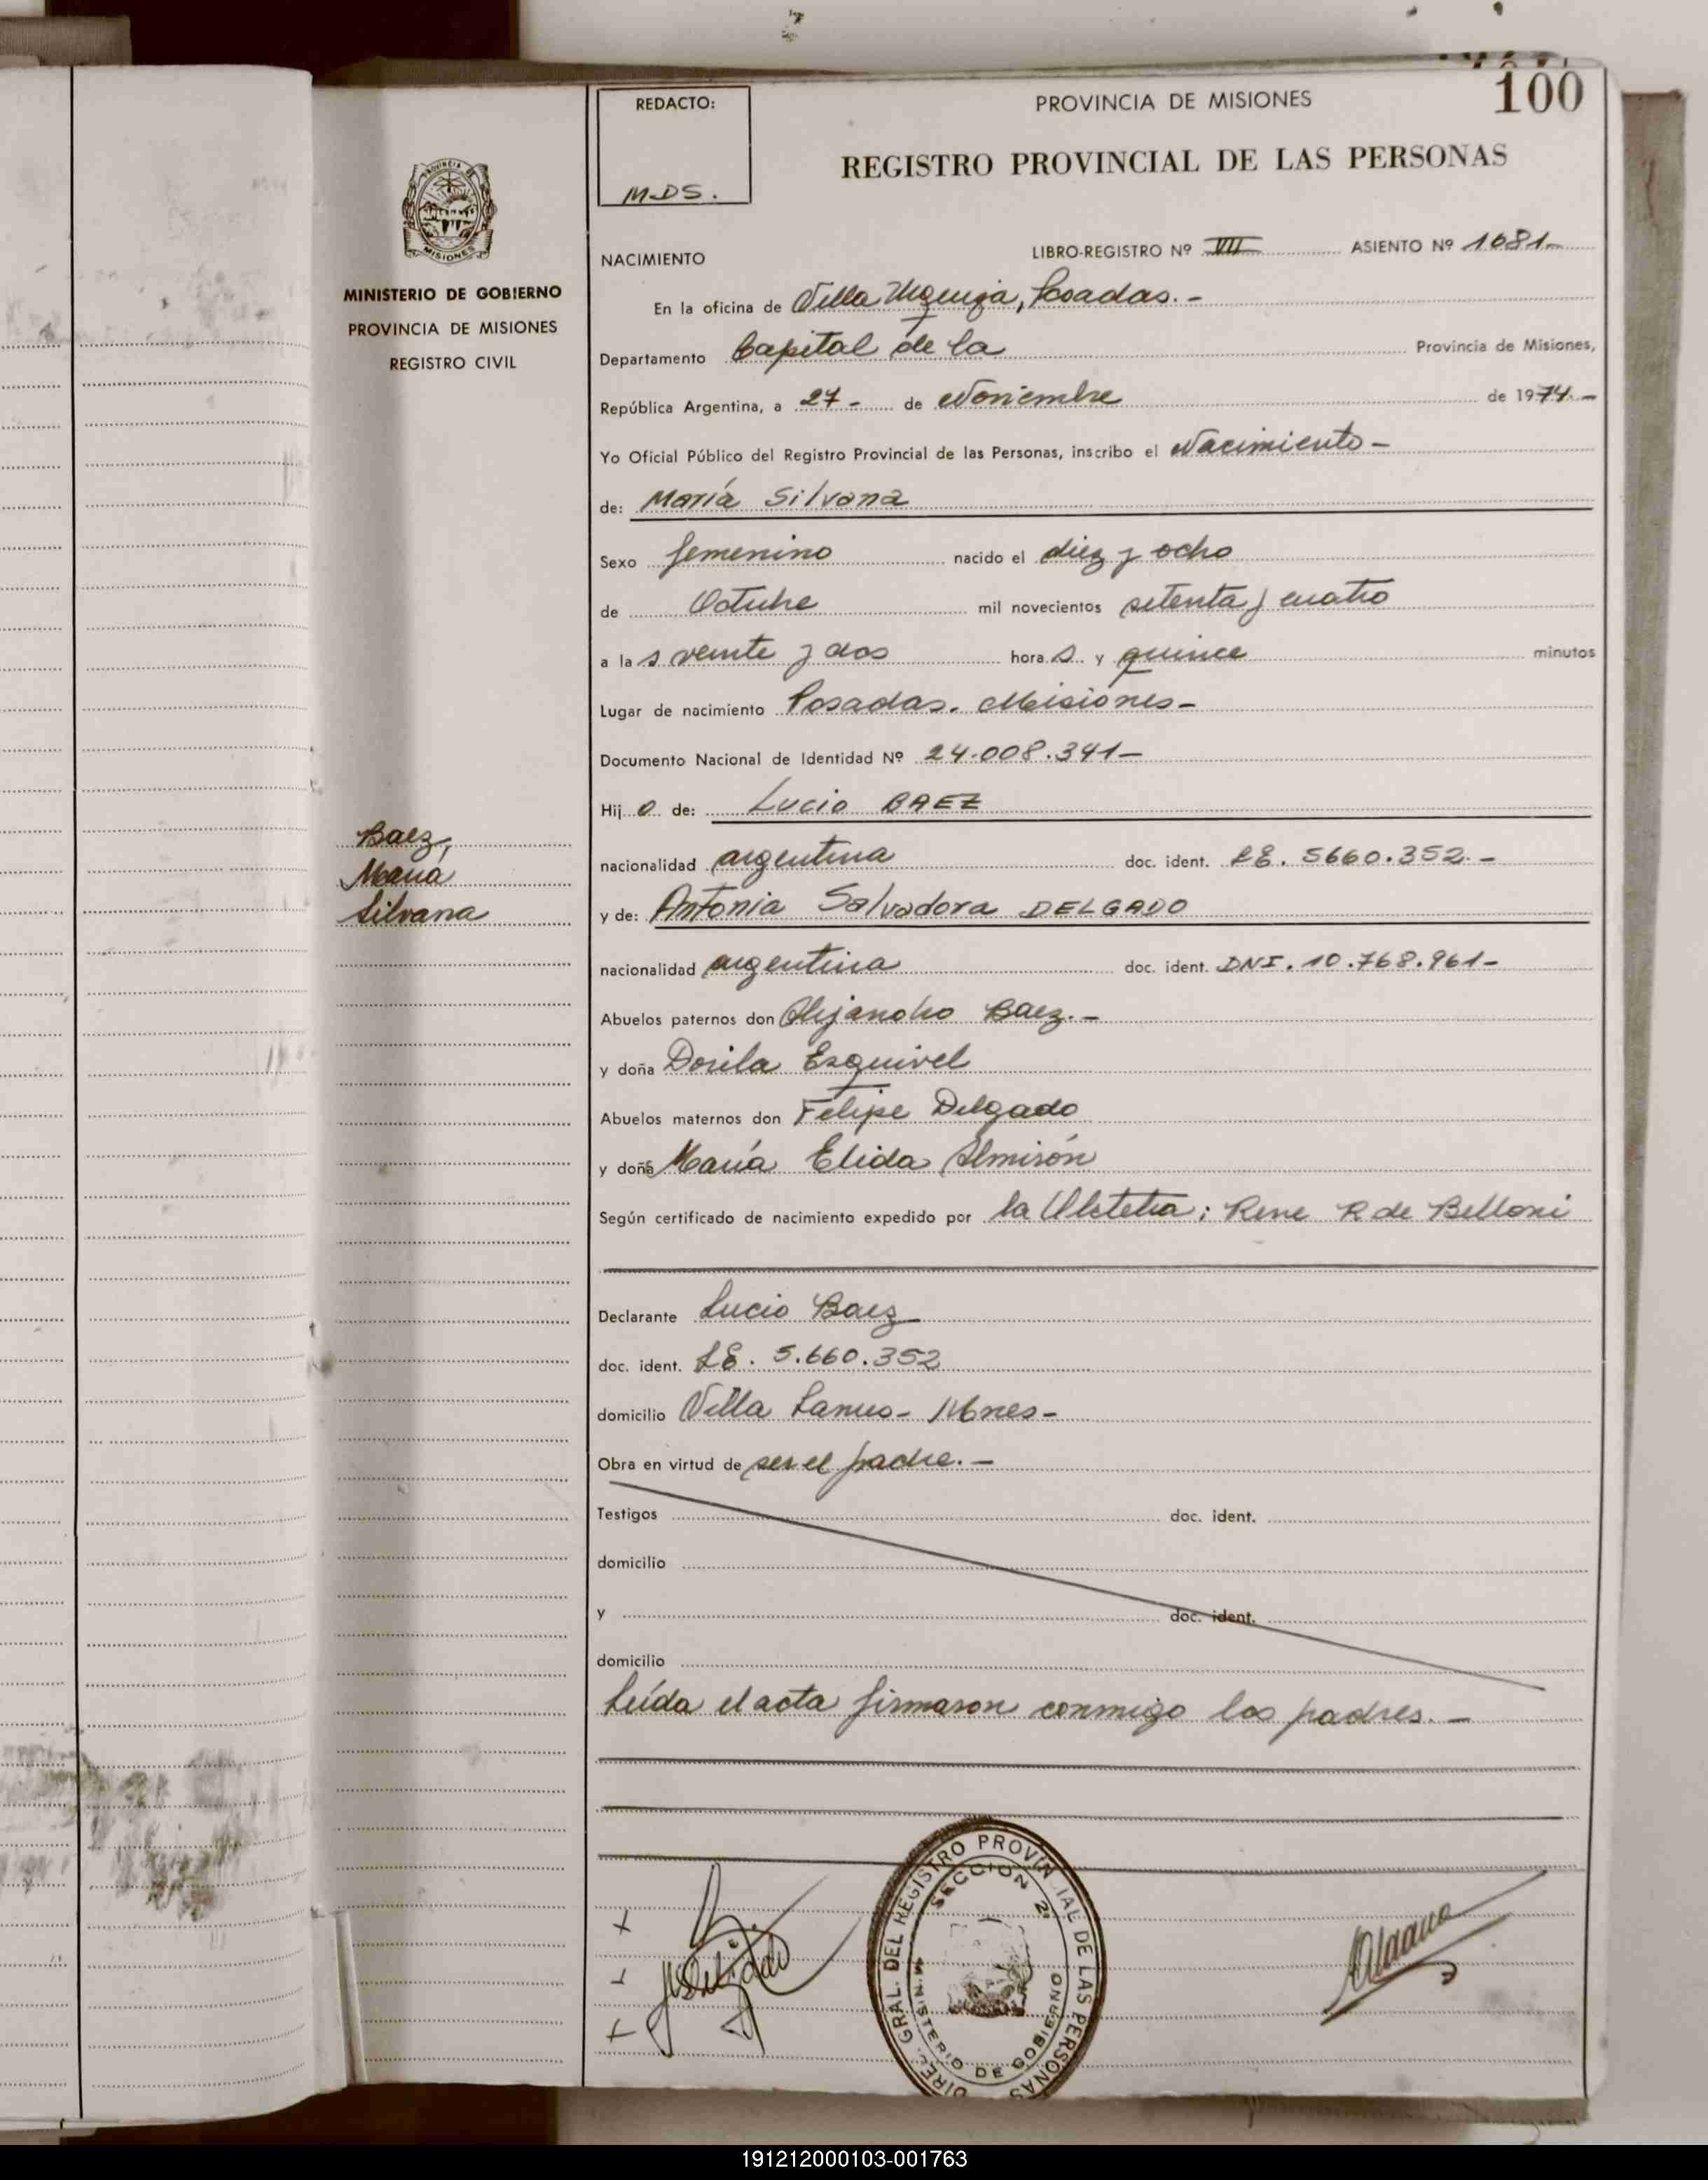 100
REDACTO:
M.D.S.
PROVINCIA DE MISIONES
REGISTRO PROVINCIAL DE LAS PERSONAS
PROVINCIA DE
MISIONES
MINISTERIO DE GOBIERNO
PROVINCIA DE MISIONES
REGISTRO CIVIL
NACIMIENTO LIBRO-REGISTRO Nº VII ASIENTO Nº 1081-
En la oficina de Villa Urquiza, Posadas.-
Departamento Capital de la Provincia de Misiones,
República Argentina, a 27- de Noviembre de 1974.-
Yo Oficial Público del Registro Provincial de las Personas, inscribo el Nacimiento-
de: María Silvana
Sexo femenino nacido el diez y ocho
de Octubre mil novecientos setenta y cuatro
a las veinte y dos horas y quince minutos
Lugar de nacimiento Posadas. Misiones-
Documento Nacional de Identidad Nº 24.008.341-
Hijo de: Lucio BAEZ
Baez,
María
Silvana
nacionalidad argentina doc. ident. LE. 5660.352.-
y de: Antonia Salvadora DELGADO
nacionalidad argentina doc. ident. DNI. 10.768.961-
Abuelos paternos don Alejandro Baez.-
y doña Dorila Esquivel
Abuelos maternos don Felipe Delgado
y doña María Elida Almirón
Según certificado de nacimiento expedido por la Obstetra: Rene R de Belloni
Declarante Lucio Baez
doc. ident. LE. 5.660.352
domicilio Villa Lanus- Mnes-
Obra en virtud de ser el padre.-
Testigos doc. ident.
domicilio
y doc. ident.
domicilio
Leída el acta firmaron conmigo los padres.-
DIREC. GRAL. DEL REGISTRO PROVINCIAL DE LAS PERSONAS
SECCION 2ª
MINISTERIO DE GOBIERNO
191212000103-001763